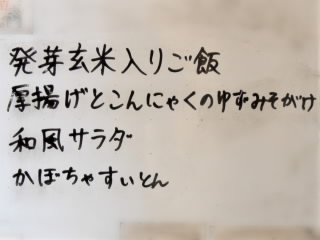 発芽玄米入りご飯
厚揚げとこんにゃくのゆずみそがけ
和風サラダ
かぼちゃすいとん